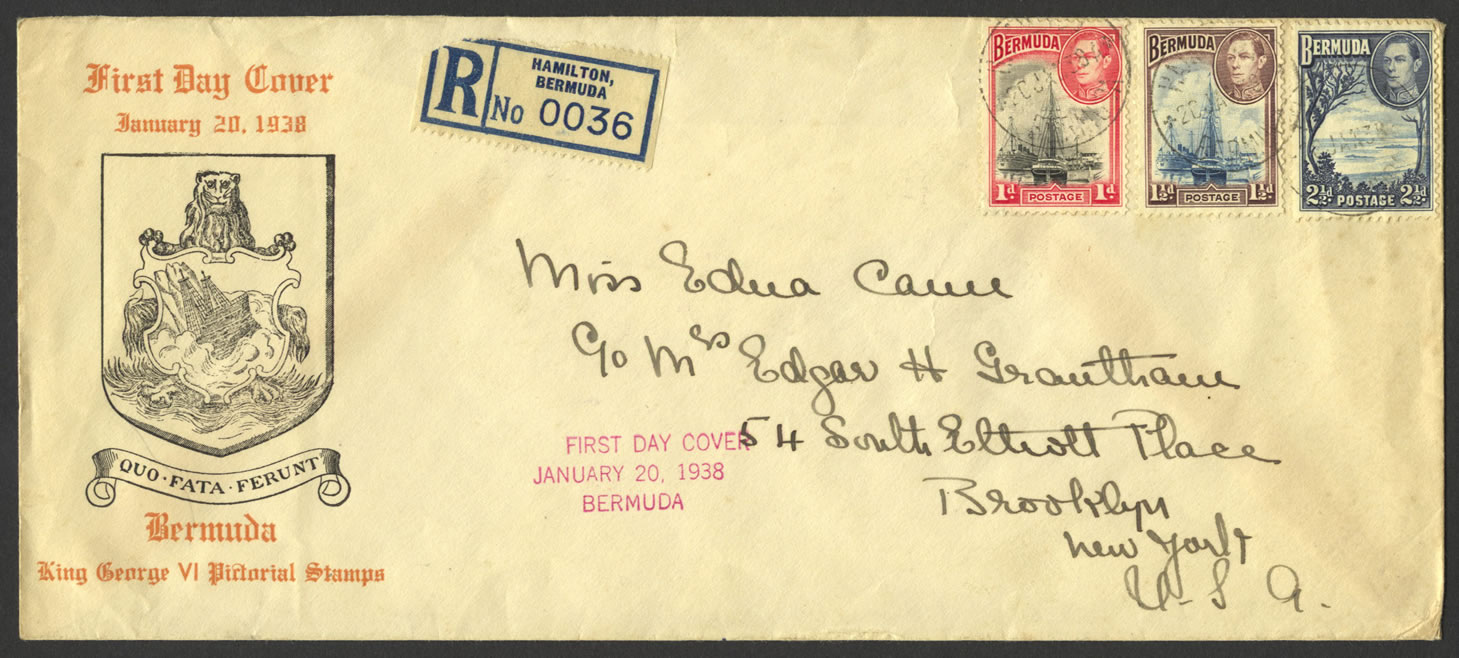 First Day Cover
January 20, 1938
QUO · FATA · FERUNT
Bermuda
King George VI Pictorial Stamps
R
HAMILTON,
BERMUDA
No 0036
BERMUDA
1d 1d
POSTAGE
BERMUDA
1½d 1½d
POSTAGE
BERMUDA
2½d. POSTAGE 2½d.
Miss Edna Cann
c/o Mrs Edgar H Grantham
54 South Elliott Place
Brooklyn
New York
U-S A.
FIRST DAY COVER
JANUARY 20, 1938
BERMUDA